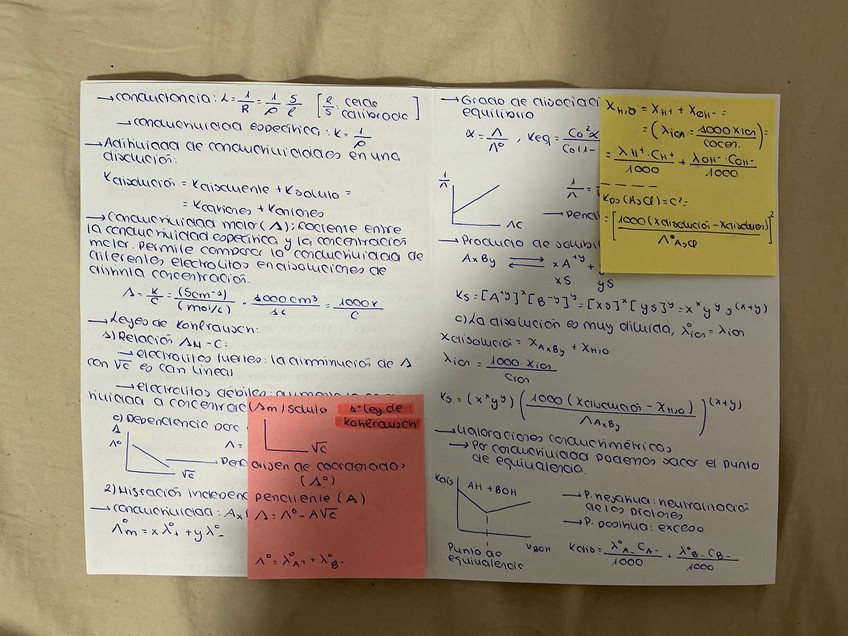 → conductancia: L = 1/R = 1/ρ S/l [l/S: celda calibrado]
→ conductividad específica: κ = 1/ρ
→ Aditividad de conductividades en una
disolución:
κdisolución = κdisolvente + κsoluto =
= κcationes + κaniones
→ Conductividad molar (Λ): cociente entre
la conductividad específica y la concentración
molar. Permite comparar la conductividad de
diferentes electrolitos en disoluciones de
distinta concentración.
Λ = κ/C = (Scm⁻¹)/(mol/L) · 1000 cm³/1L = 1000κ/C
→ Leyes de Kohlrausch:
1) Relación ΛM - C:
→ electrolitos fuertes: la disminución de Λ
con √c es casi lineal
→ electrolitos débiles:
tividad a concentrac
c) Dependencia
Λ
Λ⁰
√c
Λ =
2) Migración independ
→ conductividad: AxB
Λ⁰m = xλ⁰₊ + yλ⁰₋
(Λm) soluto
1ª Ley de
Kohlrausch
√c
origen de coordenadas
(Λ⁰)
pendiente (A)
Λ = Λ⁰ - A√c
Λ⁰ = λ⁰A⁺ + λ⁰B⁻
→ Grado de disociaci
equilibrio
α = Λ/Λ⁰ , Keq = C₀²α / C₀(1-
1/Λ
ΛC
1/Λ =
→ Pend
→ Producto de solubil
AxBy ⇌ xA⁺ʸ + y
xS yS
Ks = [A⁺ʸ]ˣ [B⁻ˣ]ʸ = [xS]ˣ [yS]ʸ = xˣ yʸ s⁽ˣ⁺ʸ⁾
c) La disolución es muy diluida, λ⁰ion = λion
κdisolución = κAxBy + κH₂O
λion = 1000·κion / Cion
Ks = (xˣyʸ) (1000(κdisolución - κH₂O) / ΛAxBy)⁽ˣ⁺ʸ⁾
→ Valoraciones conductimétricas
→ Por conductividad podemos sacar el punto
de equivalencia.
κdis
AH + BOH
VBOH
Punto de
equivalencia
→ P. negativa: neutralización
de los protones
→ P. positiva: exceso
κdis = λ⁰A⁻ CA⁻/1000 + λ⁰B⁻ CB⁻/1000
κH₂O = κH⁺ + κOH⁻ =
= (λion = 1000κion / Cion) =
= λH⁺·CH⁺/1000 + λOH⁻·COH⁻/1000
KPS (AgCl) = C² =
= [1000(κdisolución - κdisolven) / Λ⁰AgCl]²